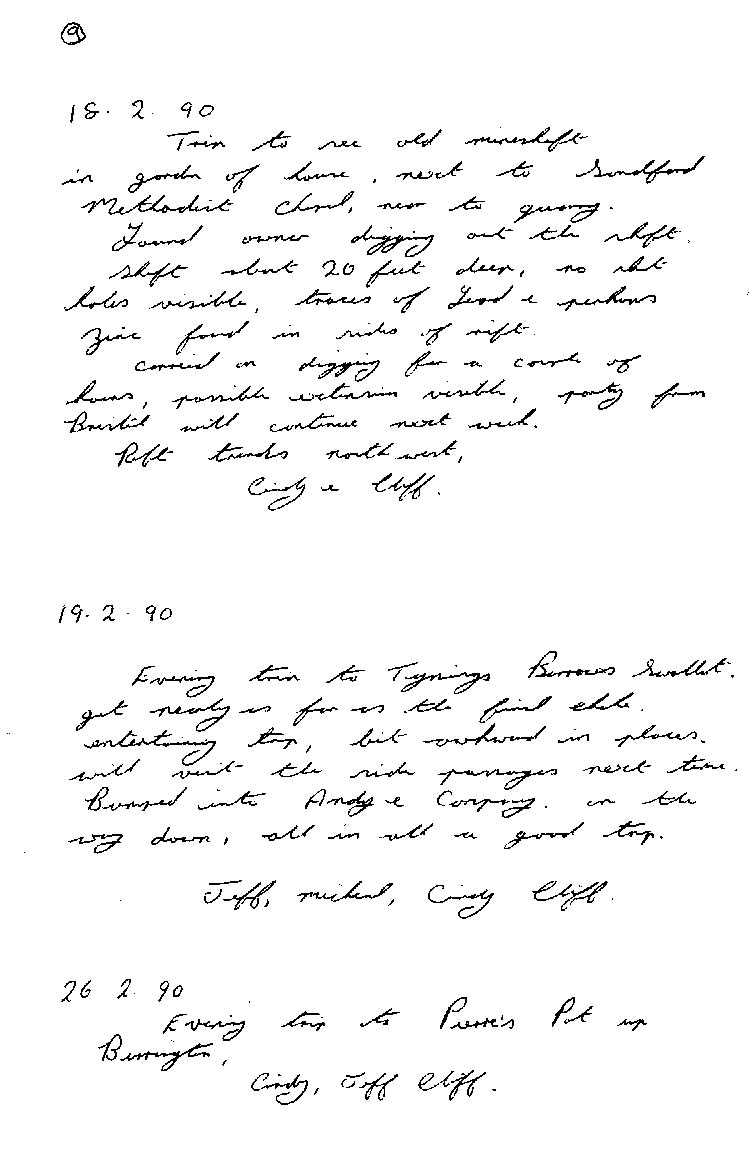 9
18. 2. 90
Trip to see old mineshaft
in garden of house, next to Sandford
Methodist Chapel, near to quarry.
Found owner digging out the shaft.
Shaft about 20 feet deep, no shot
holes visible, traces of Lead & perhaps
Zinc found in sides of rift.
Carried on digging for a couple of
hours, possible extension visible, party from
Bristol will continue next week.
Rift trends north west,
Cindy & Cliff.
19. 2. 90
Evening trip to Tynings Barrows Swallet.
got nearly as far as the final choke.
entertaining trip, bit awkward in places.
will visit the side passages next time.
Bumped into Andy & Company. on the
way down, all in all a good trip.
Jeff, Micheal, Cindy Cliff.
26 2. 90
Evening trip to Pierre's Pot up
Burrington,
Cindy, Jeff Cliff.